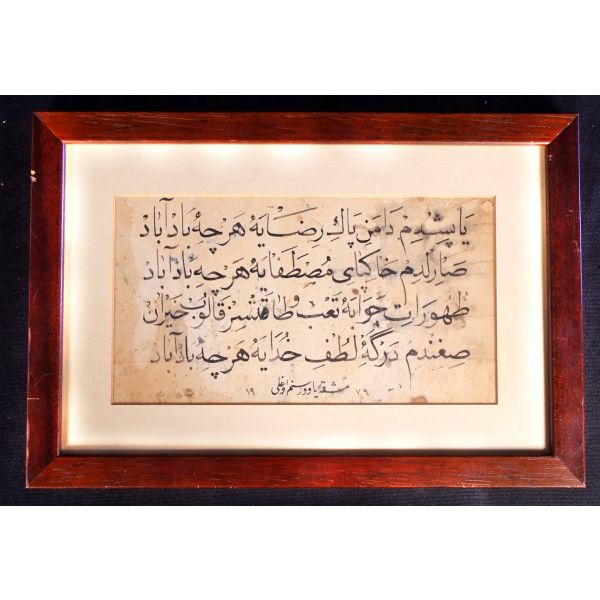 یاپشدم دامن پاك رضایه هرچه باد آباد
صارلدم خاكپای مصطفایه هرچه باد آباد
ظهورات جوابه تعب و طاقتسز قالوب حیران
صغندم درگه لطف خدایه هرچه باد آباد
مشقه یاوور اوغلی ١٩ ٧٩